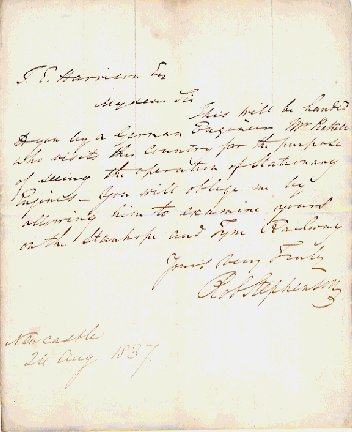 T E Harrison Esq
My dear Sir
This will be handed
to you by a German Engineer Mr
who visits this Country for the purpose
of seeing the operation of Stationary
Engines – You will oblige me by
allowing him to examine yours
on the Stanhope and Tyne Railway
Yours very truly
Rob Stephenson
Newcastle
24 Aug 1837